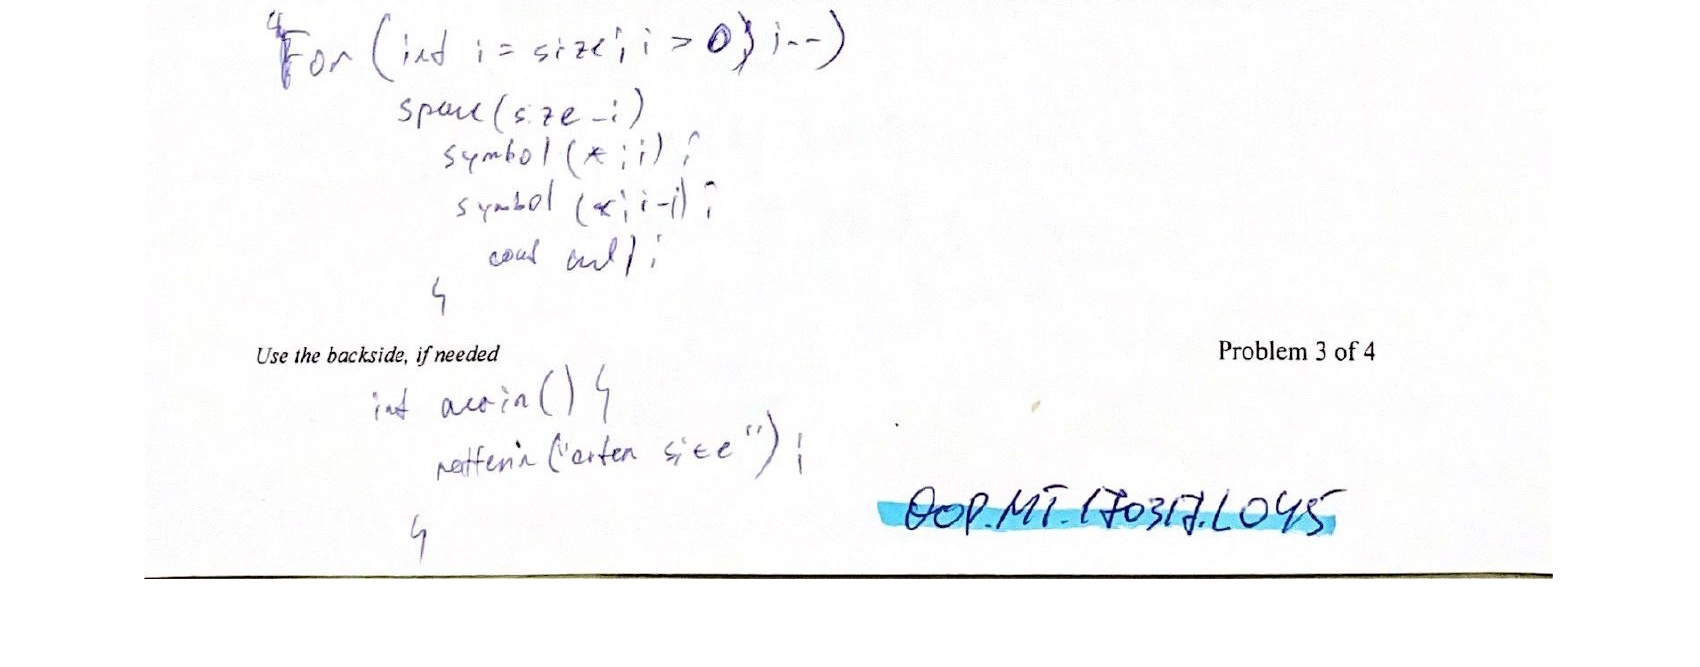 For (int i = size; i > 0; i--)
space (size - i)
symbol (*; i) ;
symbol (*; i-1) ;
cout endl ;
}
Use the backside, if needed
Problem 3 of 4
int main() {
("enter size") ;
OOP.MT.170317.L045
}